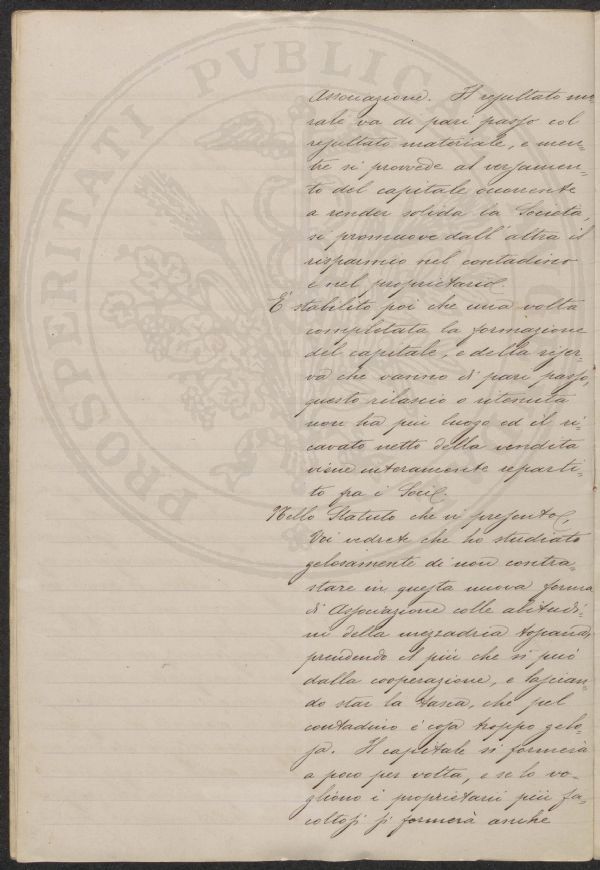 PROSPERITATI PVBLICAE
Associazione. Il resultato mo-
rale va di pari passo col
resultato materiale, e men-
tre si provvede al versamen-
to del capitale occorrente
a render solida la Società,
si promuove dall'altra il
risparmio nel contadino
e nel proprietario.
È stabilito poi che una volta
completata la formazione
del capitale, e della riser-
va che vanno di pari passo,
questo rilascio o ritenuta
non ha più luogo ed il ri-
cavato netto della vendita
viene interamente reparti-
to fra i Socii.
Nello Statuto che vi presento,
Voi vedrete che ho studiato
gelosamente di non contra-
stare in questa nuova forma
di Associazione colle abitudi-
ni della mezzadria toscana,
prendendo il più che si può
dalla cooperazione, e lascian-
do star la tasca, che pel
contadino è cosa troppo gelo-
sa. Il capitale si formerà
a poco per volta, e se lo vo-
gliono i proprietarii più fa-
coltosi si formerà anche